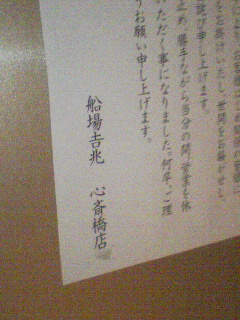 をお掛けいたし、世間をお騒がせし、
詫び申し上げます。
止め、勝手ながら当分の間、営業を休
いただく事になりました。何卒、ご理
うお願い申し上げます。
船場吉兆 心斎橋店